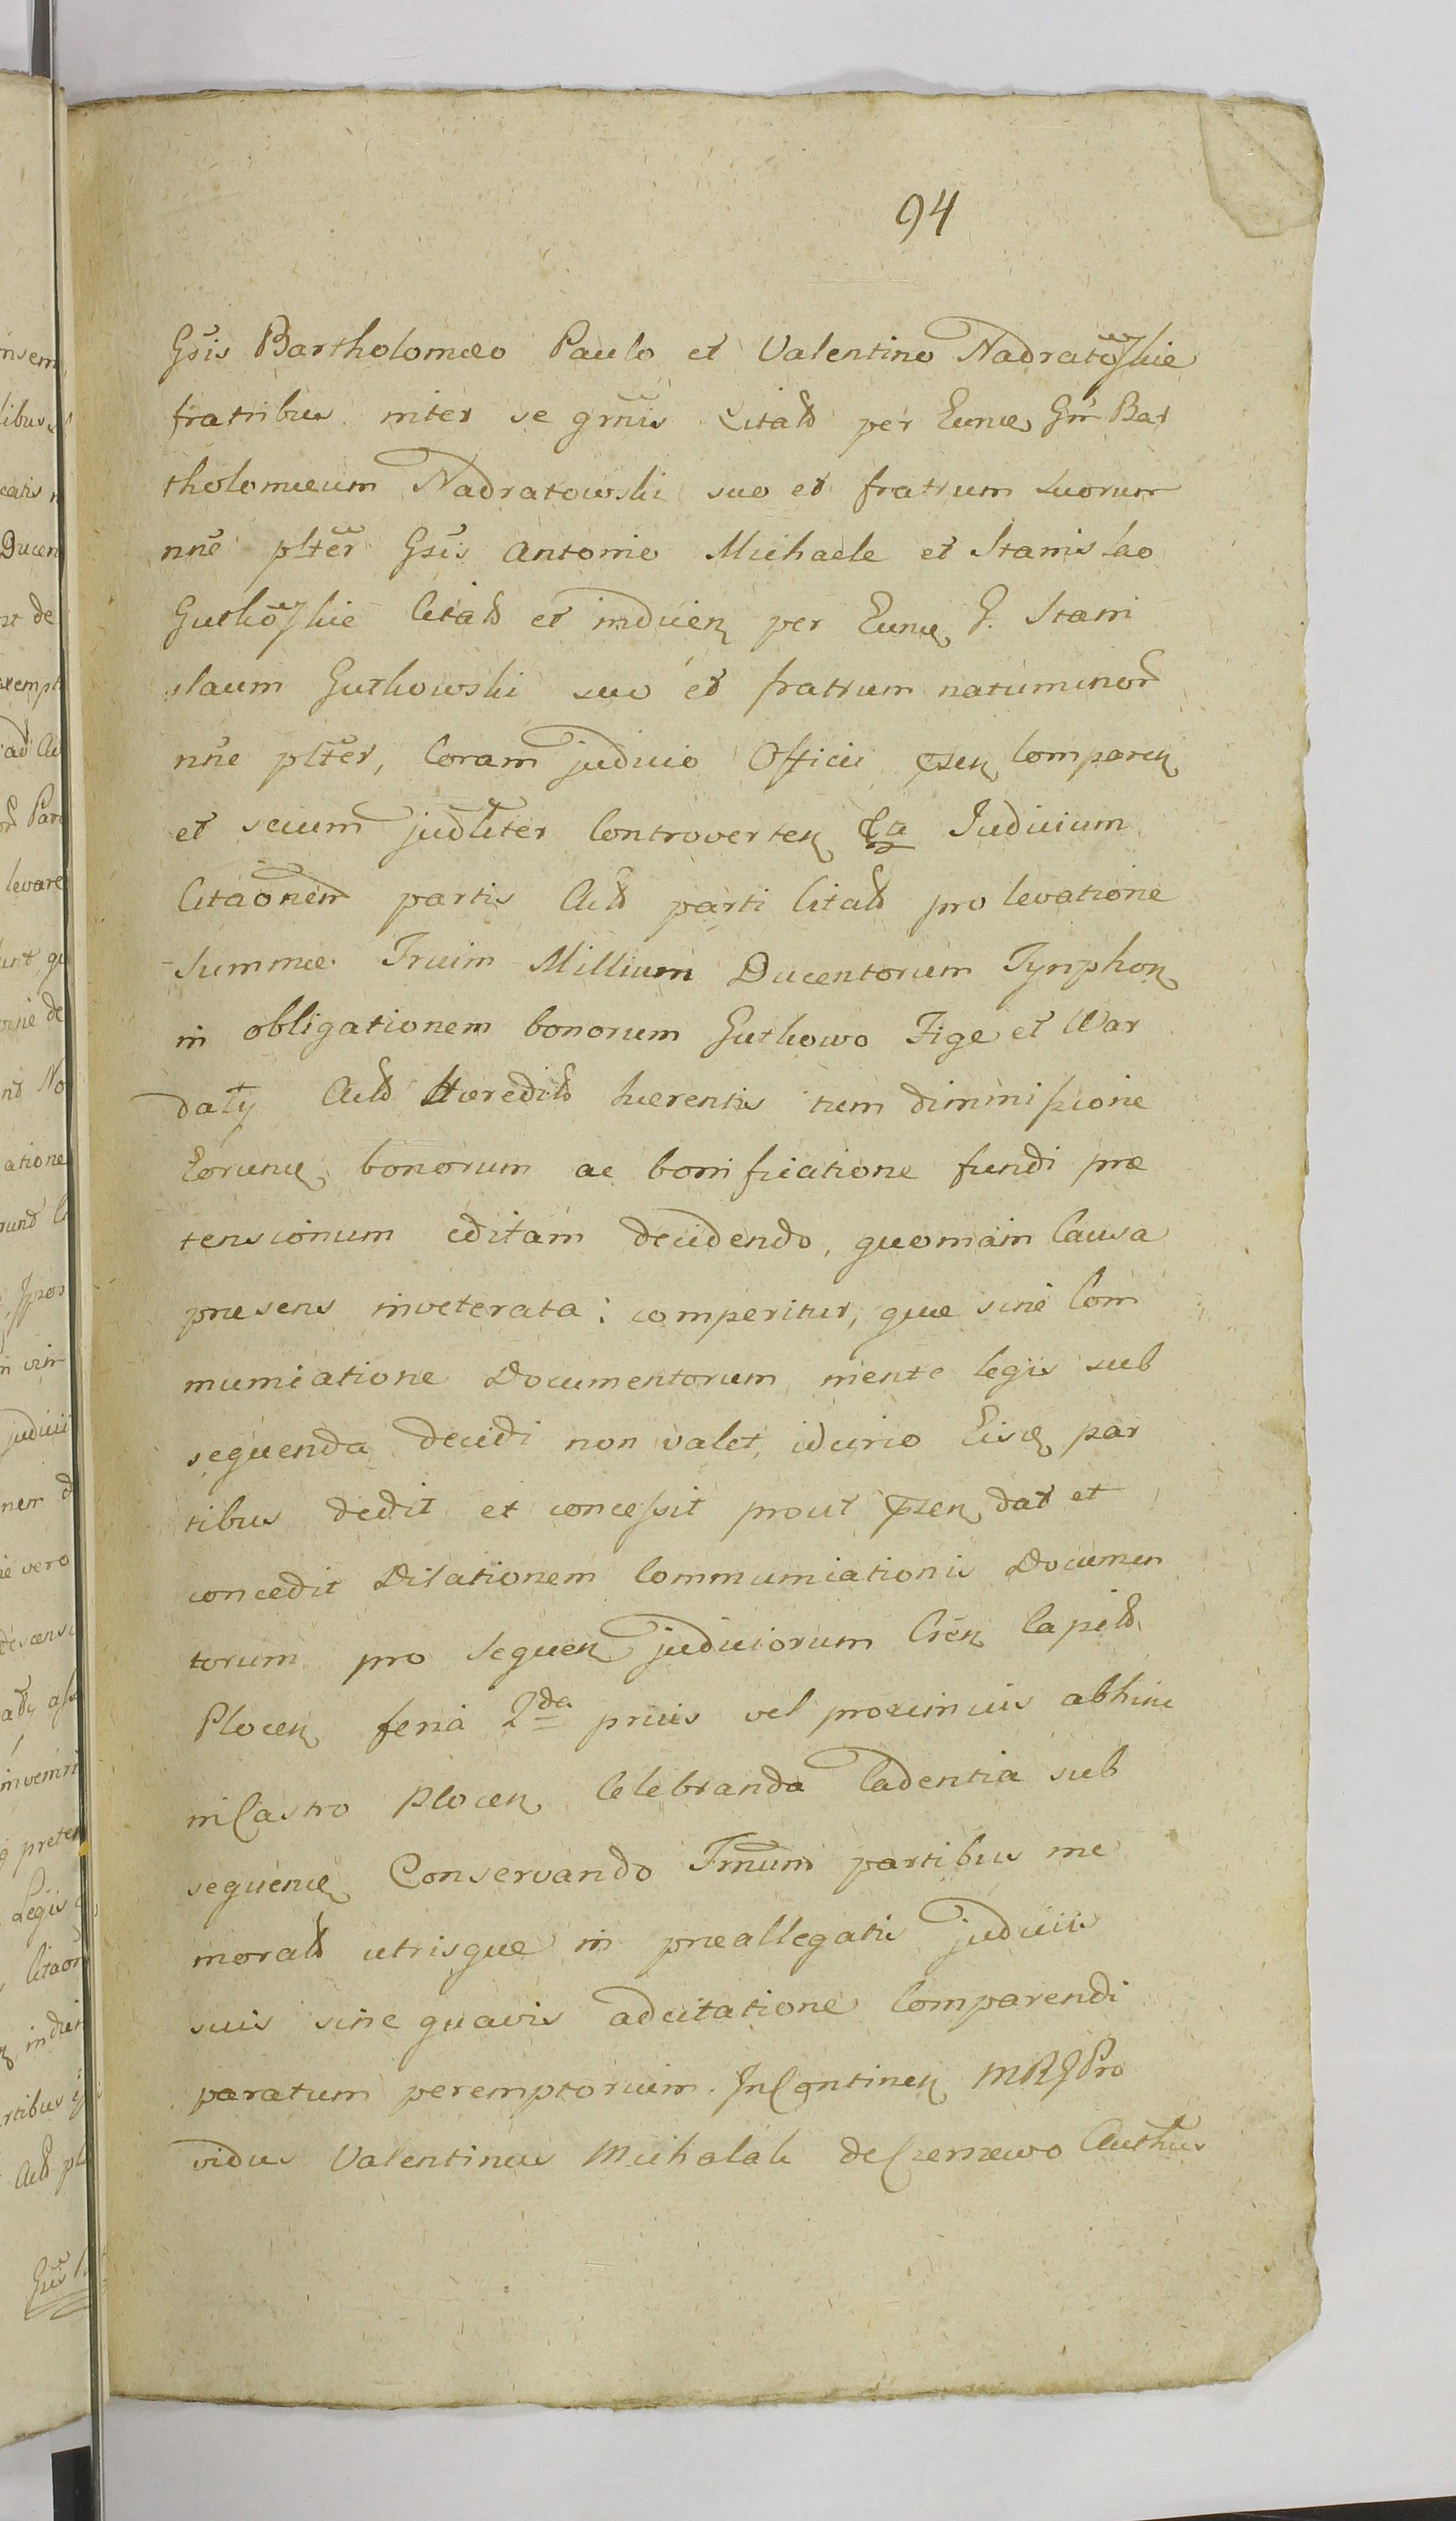 94
Gsis Bartholomæo Paulo et Valentino Nadratoskie
fratribus inter se grnis Citatt per Eunq Gnr Bar
tholomæum Nadratowski suo et fratrum suorum
nne plter Gsis Antonio Michaele et Stanislao
Gutkoskie Citatt et inducen per Eunq G. Stani
slaum Gutkowski suo et fratrum natuminor
nne plter, Coram judicio Officii pzen Comparen
et secum judliter Controverten Judicium
Citaonem partis Actt parti Citatt pro levatione
Summæ Trium Millium Ducentorum Tynphon
in obligationem bonorum Gutkowo Fige et War
daty Actt Hæreditt hærentis tum dimmissione
Eorunq bonorum ac bonificatione fundi præ
tensionum editam decidendo, quoniam Causa
præsens inveterata: comperitur, quæ sine Com
municatione Documentorum mente legis sub
sequenda decidi non valet, idcirco Eisq par
tibus dedit et concessit prout pzen dat et
concedit Dilationem Communicationis Documen
torum pro Sequen judiciorum Cren Capitt
Plocen feria 2da prius vel proximius abhinc
in Castro Plocen Celebranda Cadentia sub
sequenq Conservando Trnum partibus me
moratt utrisque in præallegatis judiciis
suis sine quavis adcitatione Comparendi
paratum peremptorium. In Continen MRJ Pro
vidus Valentinus Michalak de Czernewo Authus